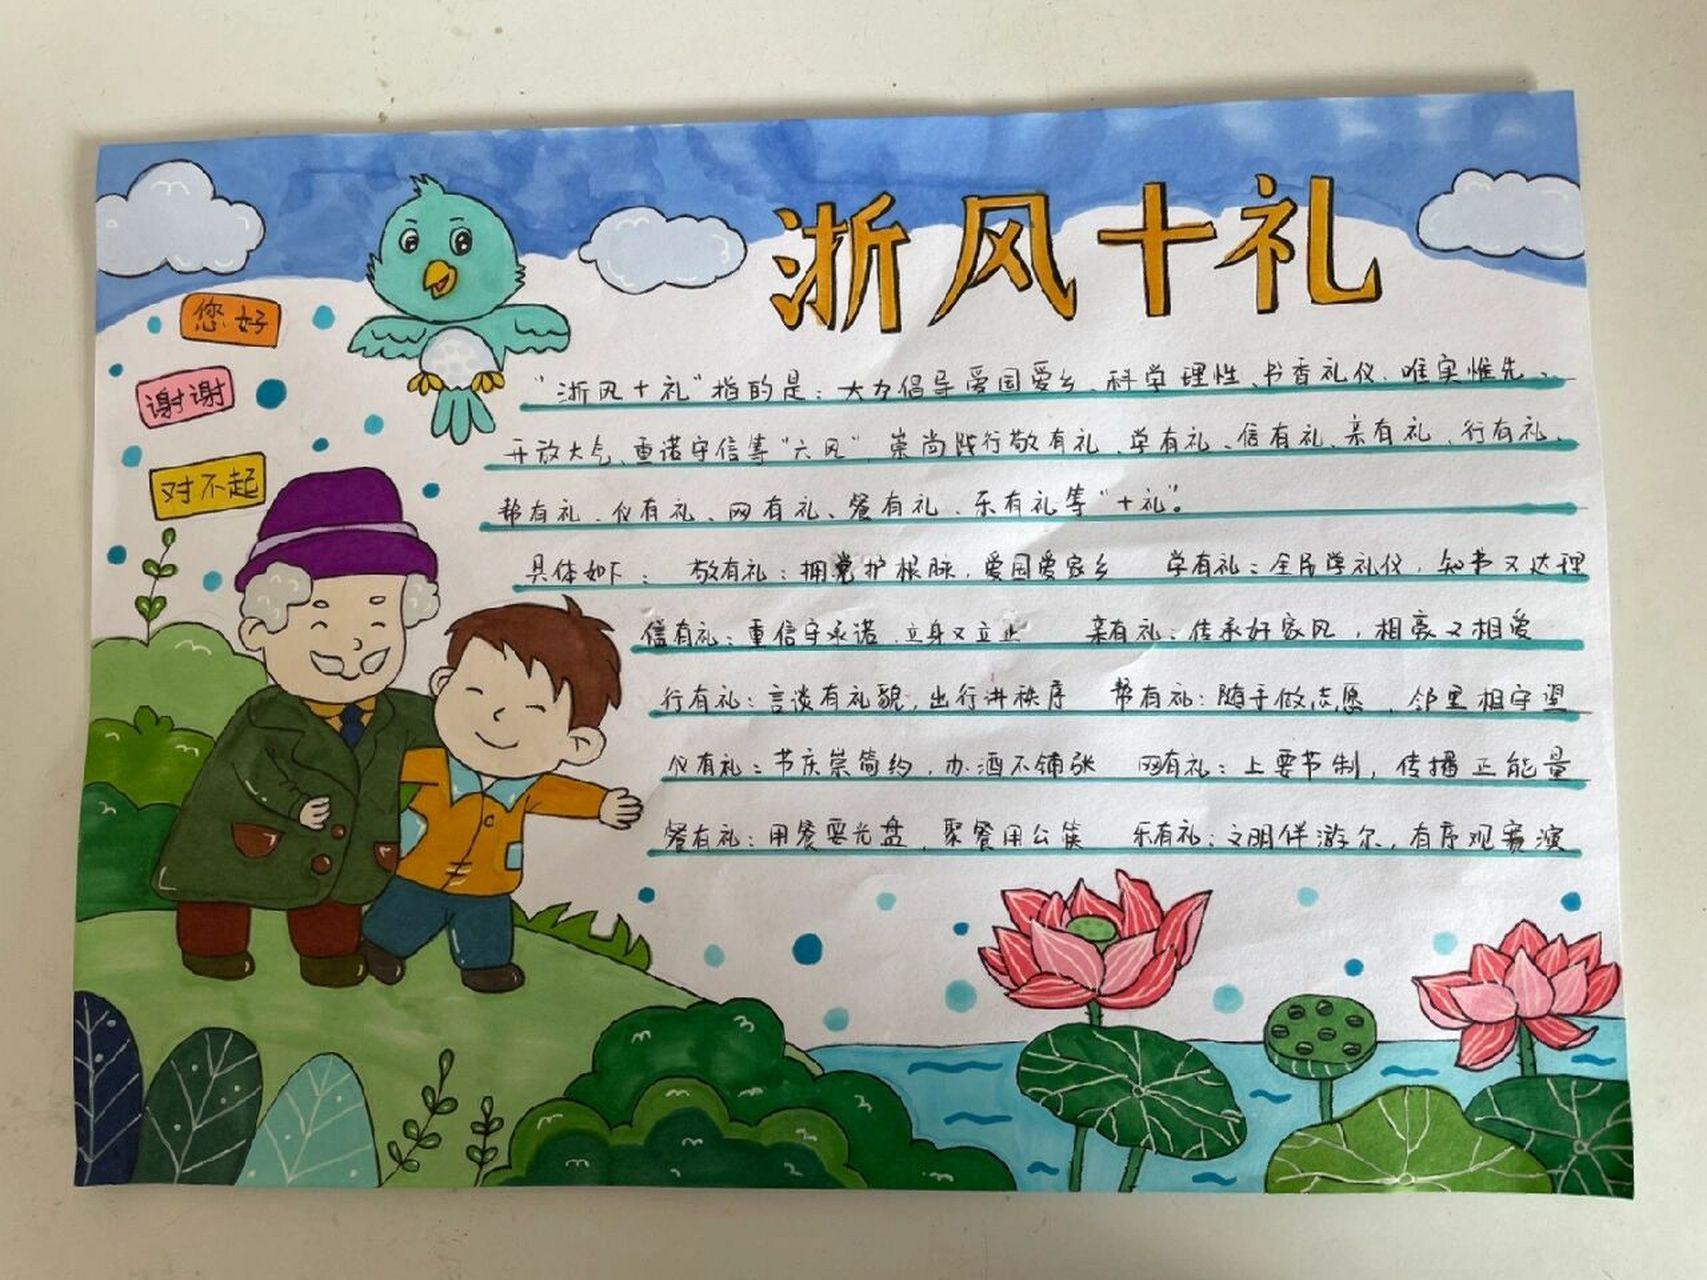 浙风十礼
您好
谢谢
对不起
"浙风十礼"指的是：大力倡导爱国爱乡、科学理性、书香礼仪、唯实惟先、
开放大气、重诺守信等"六风"，崇尚践行敬有礼、学有礼、信有礼、亲有礼、行有礼、
帮有礼、仪有礼、网有礼、餐有礼、乐有礼等"十礼"。
具体如下： 敬有礼：拥党护根脉，爱国爱家乡 学有礼：全民学礼仪，知书又达理
信有礼：重信守承诺，立身又立业 亲有礼：传承好家风，相亲又相爱
行有礼：言谈有礼貌，出行讲秩序 帮有礼：随手做志愿，邻里相守望
仪有礼：节庆崇简约，办酒不铺张 网有礼：上要节制，传播正能量
餐有礼：用餐要光盘，聚餐用公筷 乐有礼：文明伴游乐，有序观赛演